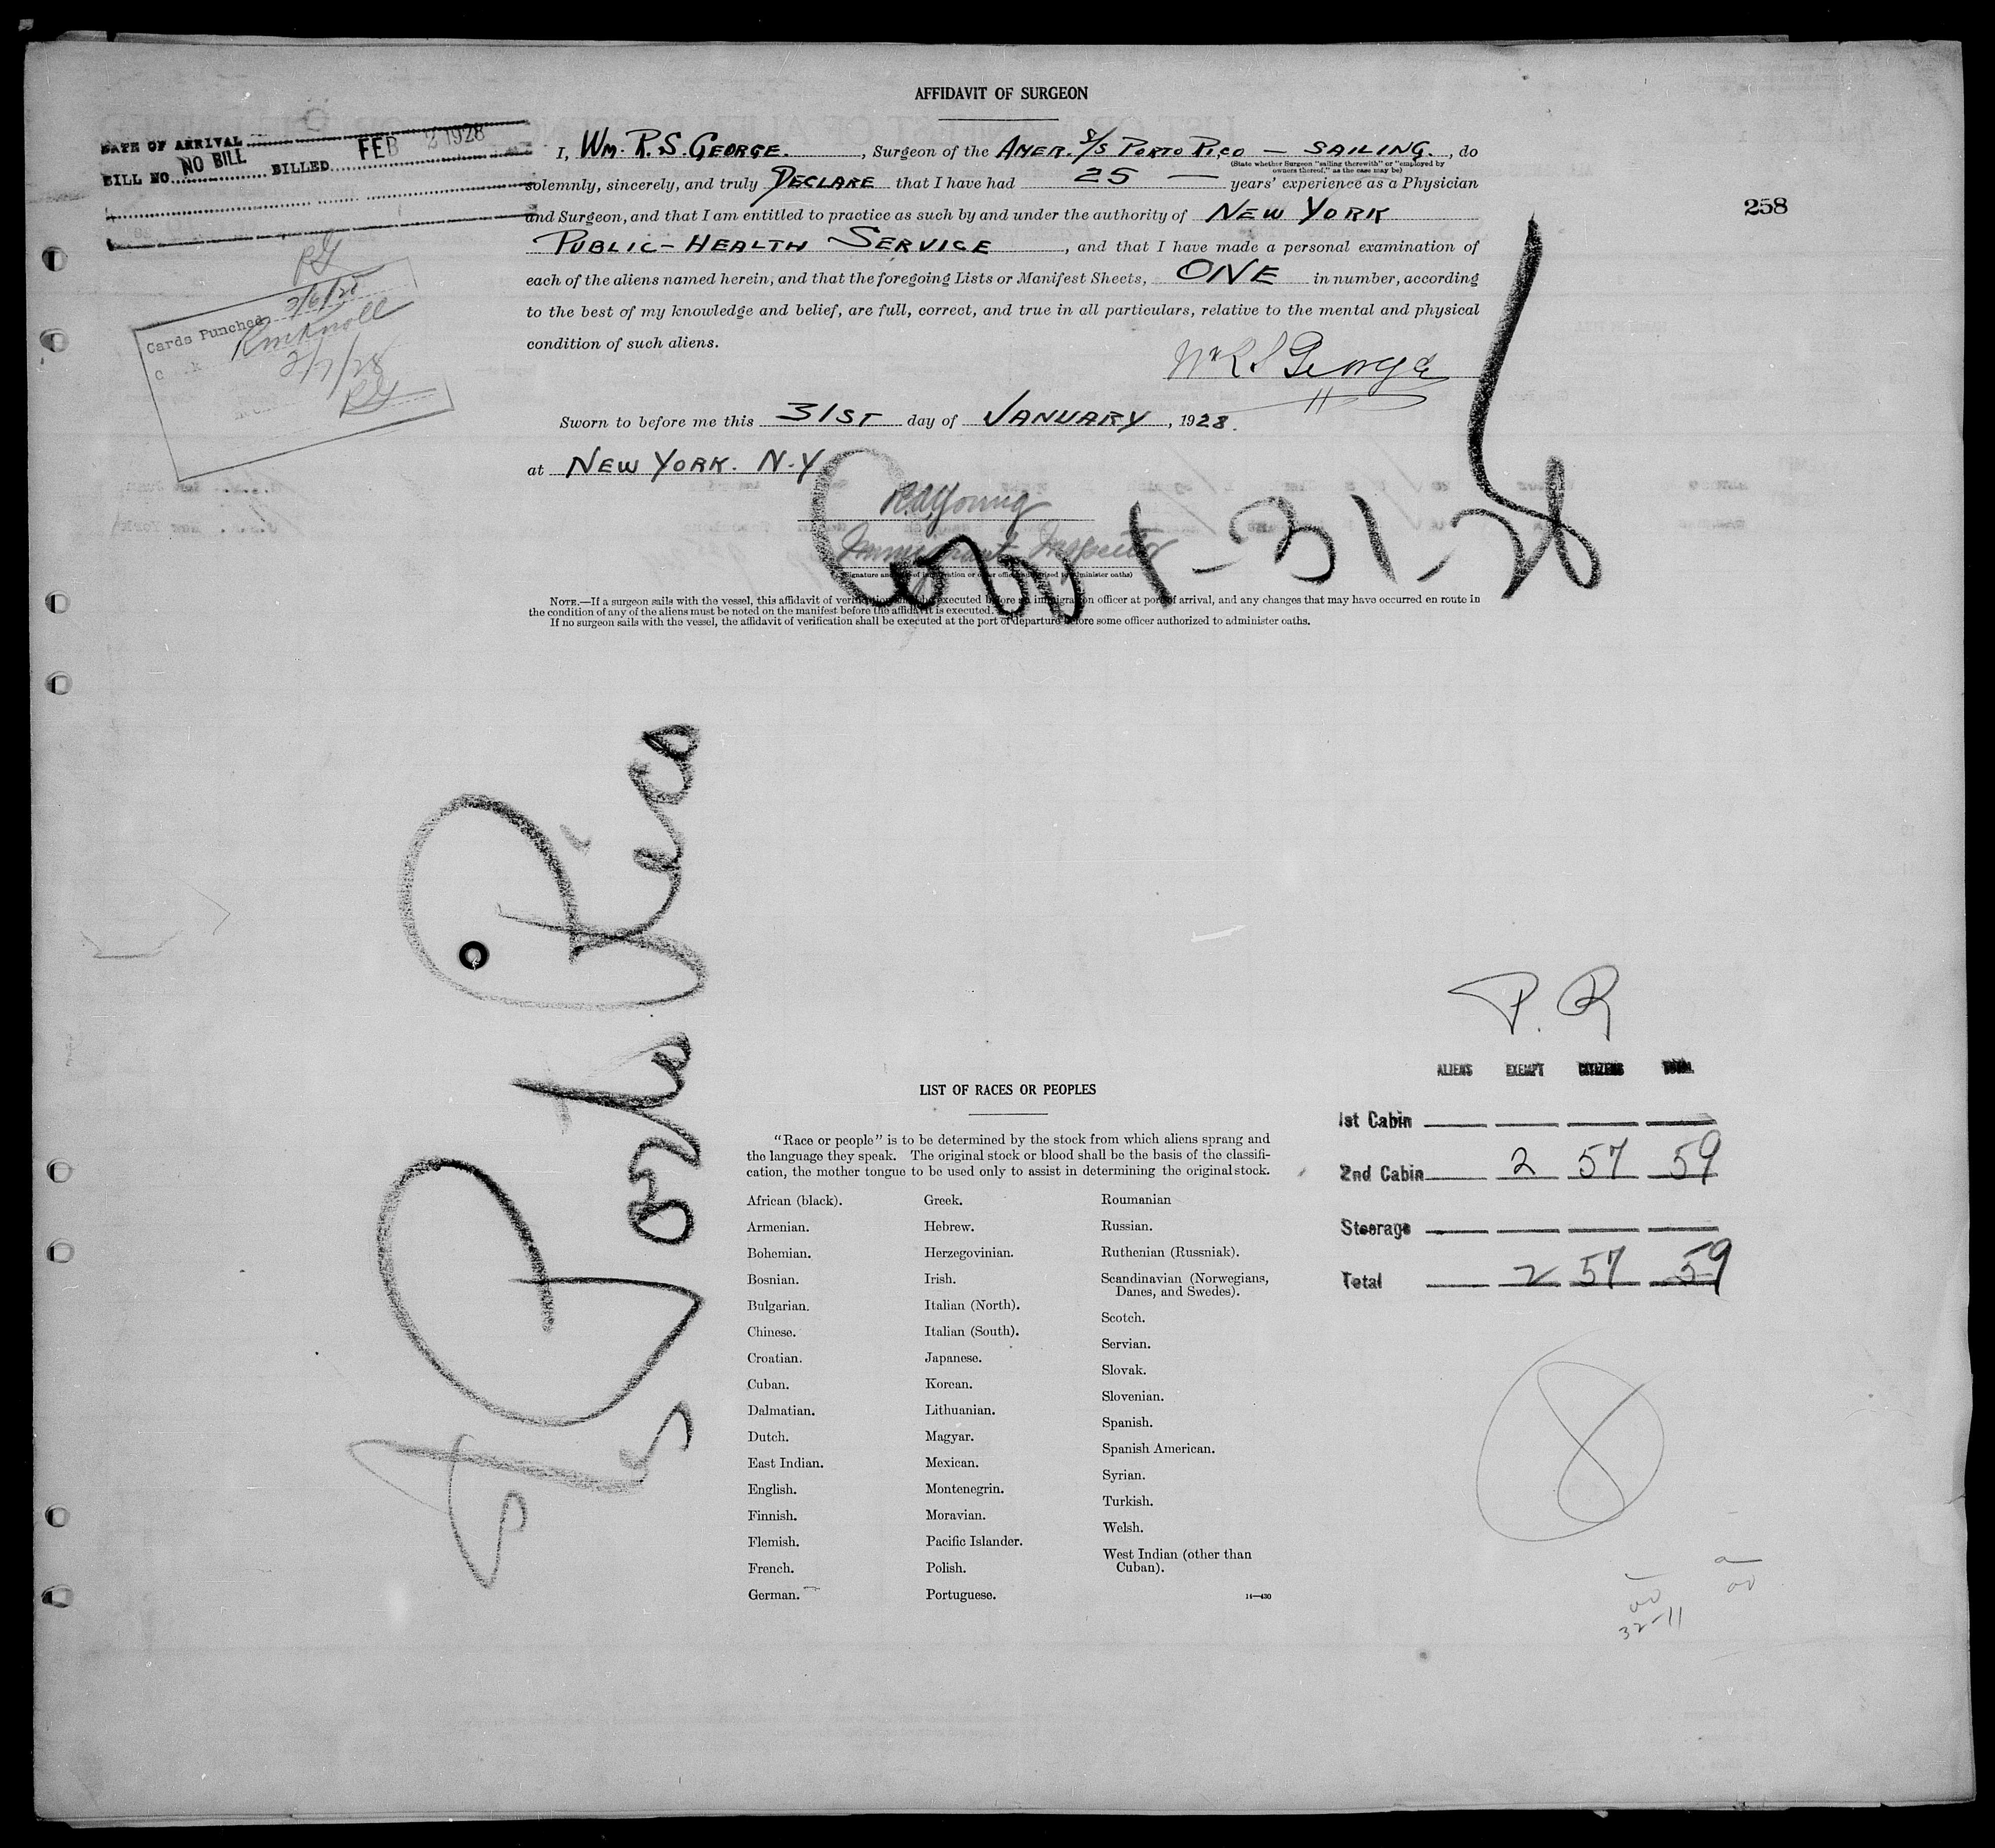 AFFIDAVIT OF SURGEON
DATE OF ARRIVAL
BILL NO. NO BILL BILLED FEB 2 1928
I, WM. R.S. GEORGE., Surgeon of the AMER. S/S PORTO RICO — SAILING., do
(State whether Surgeon "sailing therewith" or "employed by
owners thereof," as the case may be)
solemnly, sincerely, and truly DECLARE that I have had 25 — years' experience as a Physician
and Surgeon, and that I am entitled to practice as such by and under the authority of NEW YORK
PUBLIC-HEALTH SERVICE, and that I have made a personal examination of
each of the aliens named herein, and that the foregoing Lists or Manifest Sheets, ONE in number, according
to the best of my knowledge and belief, are full, correct, and true in all particulars, relative to the mental and physical
condition of such aliens.
258
Cards Punched 2/6/28
2/7/28
Wm R S George
Sworn to before me this 31ST day of JANUARY, 1928.
at NEW YORK. N.Y.
Immigrant Inspector
1-31-28
NOTE.—If a surgeon sails with the vessel, this affidavit of verification shall be executed before an immigration officer at port of arrival, and any changes that may have occurred en route in
the condition of any of the aliens must be noted on the manifest before the affidavit is executed.
If no surgeon sails with the vessel, the affidavit of verification shall be executed at the port of departure before some officer authorized to administer oaths.
Porto Rico
P. R
ALIENS EXEMPT CITIZENS TOTAL
1st Cabin
2nd Cabin 2 57 59
Steerage
Total 2 57 59
LIST OF RACES OR PEOPLES
"Race or people" is to be determined by the stock from which aliens sprang and
the language they speak. The original stock or blood shall be the basis of the classifi-
cation, the mother tongue to be used only to assist in determining the original stock.
African (black).
Armenian.
Bohemian.
Bosnian.
Bulgarian.
Chinese.
Croatian.
Cuban.
Dalmatian.
Dutch.
East Indian.
English.
Finnish.
Flemish.
French.
German.
Greek.
Hebrew.
Herzegovinian.
Irish.
Italian (North).
Italian (South).
Japanese.
Korean.
Lithuanian.
Magyar.
Mexican.
Montenegrin.
Moravian.
Pacific Islander.
Polish.
Portuguese.
Roumanian
Russian.
Ruthenian (Russniak).
Scandinavian (Norwegians,
Danes, and Swedes).
Scotch.
Servian.
Slovak.
Slovenian.
Spanish.
Spanish American.
Syrian.
Turkish.
Welsh.
West Indian (other than
Cuban).
14—430
32-11